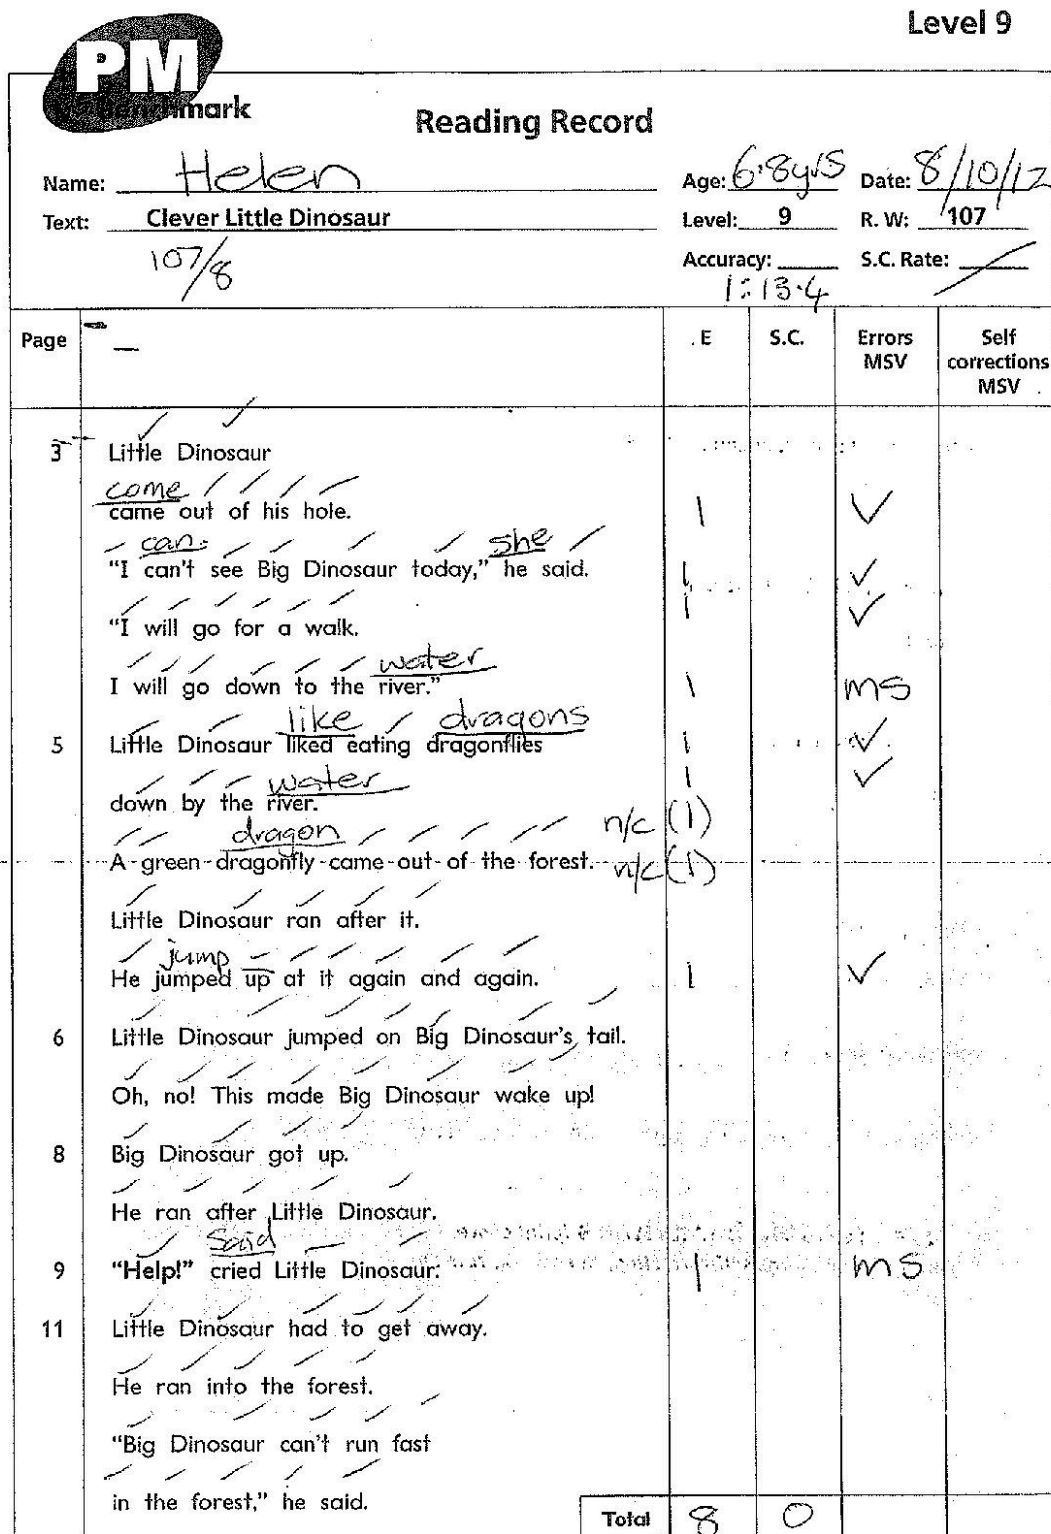 Level 9
PM
Benchmark
Reading Record
Name: Helen Age: 6.8yrs Date: 8/10/12
Text: Clever Little Dinosaur Level: 9 R. W: 107
107/8 Accuracy: S.C. Rate:
1:13.4
Page E S.C. Errors MSV Self corrections MSV
3 Little Dinosaur
come
came out of his hole. 1 ✓
can she
"I can't see Big Dinosaur today," he said. 1 ✓
1 ✓
"I will go for a walk.
water
I will go down to the river." 1 ms
like dragons
5 Little Dinosaur liked eating dragonflies 1 ✓
1 ✓
water
down by the river.
dragon n/c (1)
A green dragonfly came out of the forest. n/c (1)
Little Dinosaur ran after it.
jump
He jumped up at it again and again. 1 ✓
6 Little Dinosaur jumped on Big Dinosaur's tail.
Oh, no! This made Big Dinosaur wake up!
8 Big Dinosaur got up.
He ran after Little Dinosaur.
Said
9 "Help!" cried Little Dinosaur. 1 ms
11 Little Dinosaur had to get away.
He ran into the forest.
"Big Dinosaur can't run fast
in the forest," he said.
Total 8 0